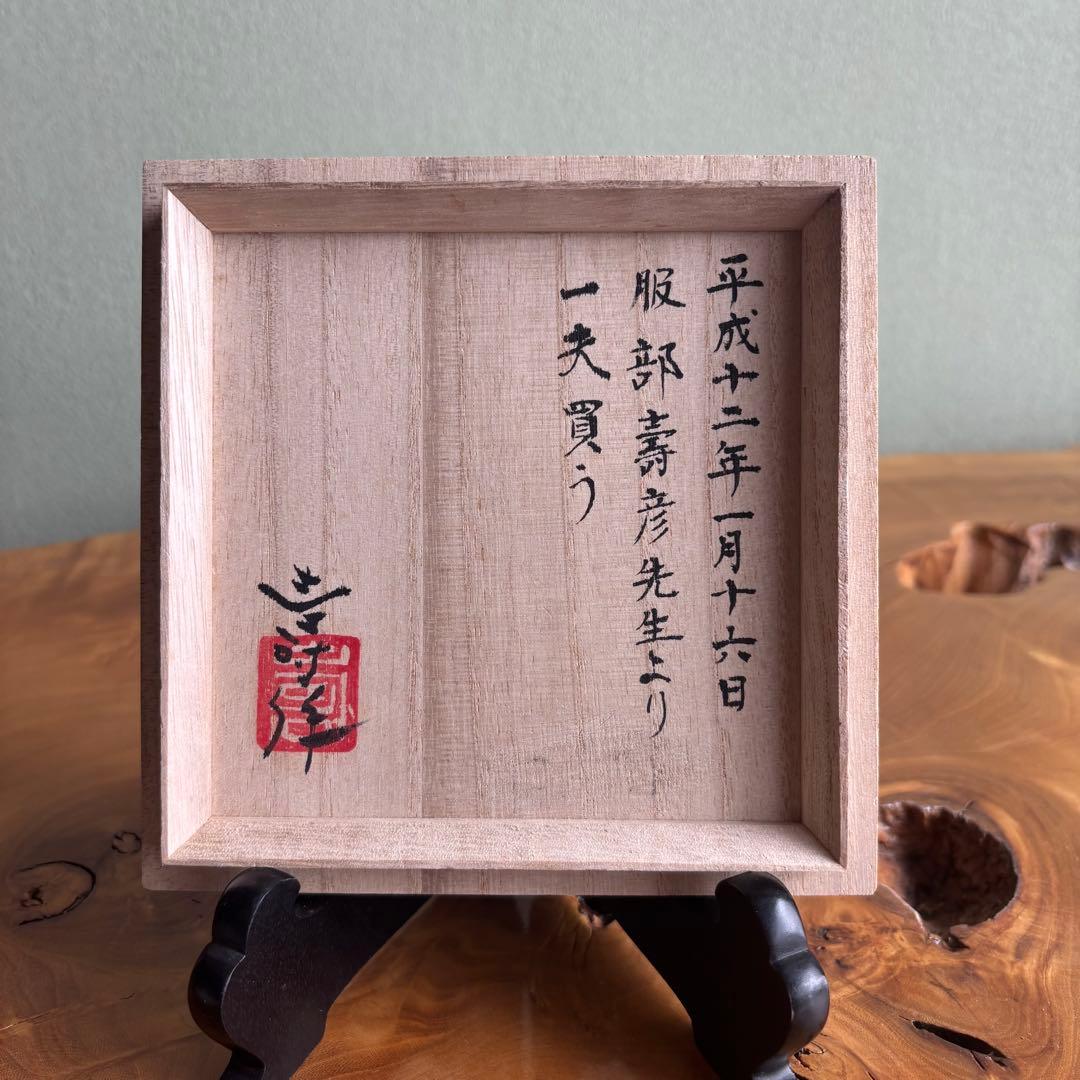 平成十二年一月十六日
服部壽彦先生より
一夫買う
壽彦